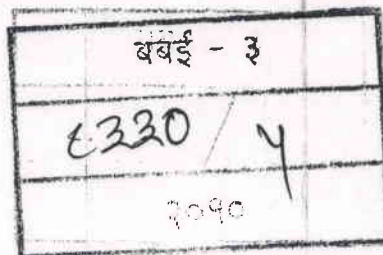 बबई - ३
८३३० / ५
२०१०